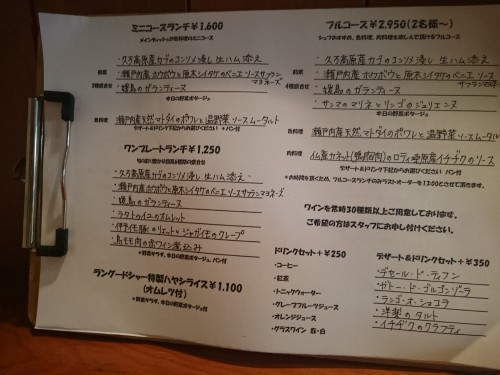 ミニコースランチ ¥1,600
メインディッシュが魚料理のミニコース
・久万高原産カブのコンソメ浸し 生ハム添え
前菜
3種盛合せ
・瀬戸内産ホウボウと原木シイタケのベニエ ソースサフランマヨネーズ
・媛鳥のガランティーヌ
本日の野菜ポタージュ
魚料理
瀬戸内産天然マトダイのポワレと温野菜 ソースムータルト
デザート&ドリンク下記からお選びください パン付
ワンプレートランチ ¥1,250
・久万高原産カブのコンソメ浸し 生ハム添え
・瀬戸内産ホウボウと原木シイタケのベニエ ソースサフランマヨネーズ
・媛鳥のガランティーヌ
・ラタトゥイユのオムレット
・伊予モ豚のリエットとジャガイモのクレープ
・鳥モモ肉の赤ワイン煮込み
*野菜サラダ、本日の野菜ポタージュ、パン付
ラングードシャー特製ハヤシライス ¥1,100
(オムレツ付)
*野菜サラダ、本日の野菜ポタージュ付
フルコース ¥2,950(2名様~)
シェフおすすめ、魚料理、肉料理を楽しんで頂けるフルコース
・久万高原産カブのコンソメ浸し 生ハム添え
前菜
4種盛合せ
・瀬戸内産ホウボウと原木シイタケのベニエ ソースサフランマヨネーズ
・媛鳥のガランティーヌ
・サンマのマリネとリンゴのジュリエンヌ
本日の野菜ポタージュ
魚料理
瀬戸内産天然マトダイのポワレと温野菜 ソースムータルト
肉料理
仏産カネット(鴨胸肉)のロティ 愛媛産イチヂクのソース
デザート&ドリンク下記からお選びください パン付
*お時間を頂くため、フルコースのみラストオーダーを13:00とさせて頂きます。
ワインを常時30種類以上ご用意しております。
ご希望の方はスタッフにお申し付けください。
ドリンクセット +¥250
・コーヒー
・紅茶
・トニックウォーター
・グレープフルーツジュース
・オレンジジュース
・グラスワイン 赤・白
デザート&ドリンクセット +¥350
・デセール・ド・ティフン
・ガトー・ド・ゴルゴンゾーラ
・ランゴ・オ・ショコラ
・洋梨のタルト
・イチヂクのクラフティ